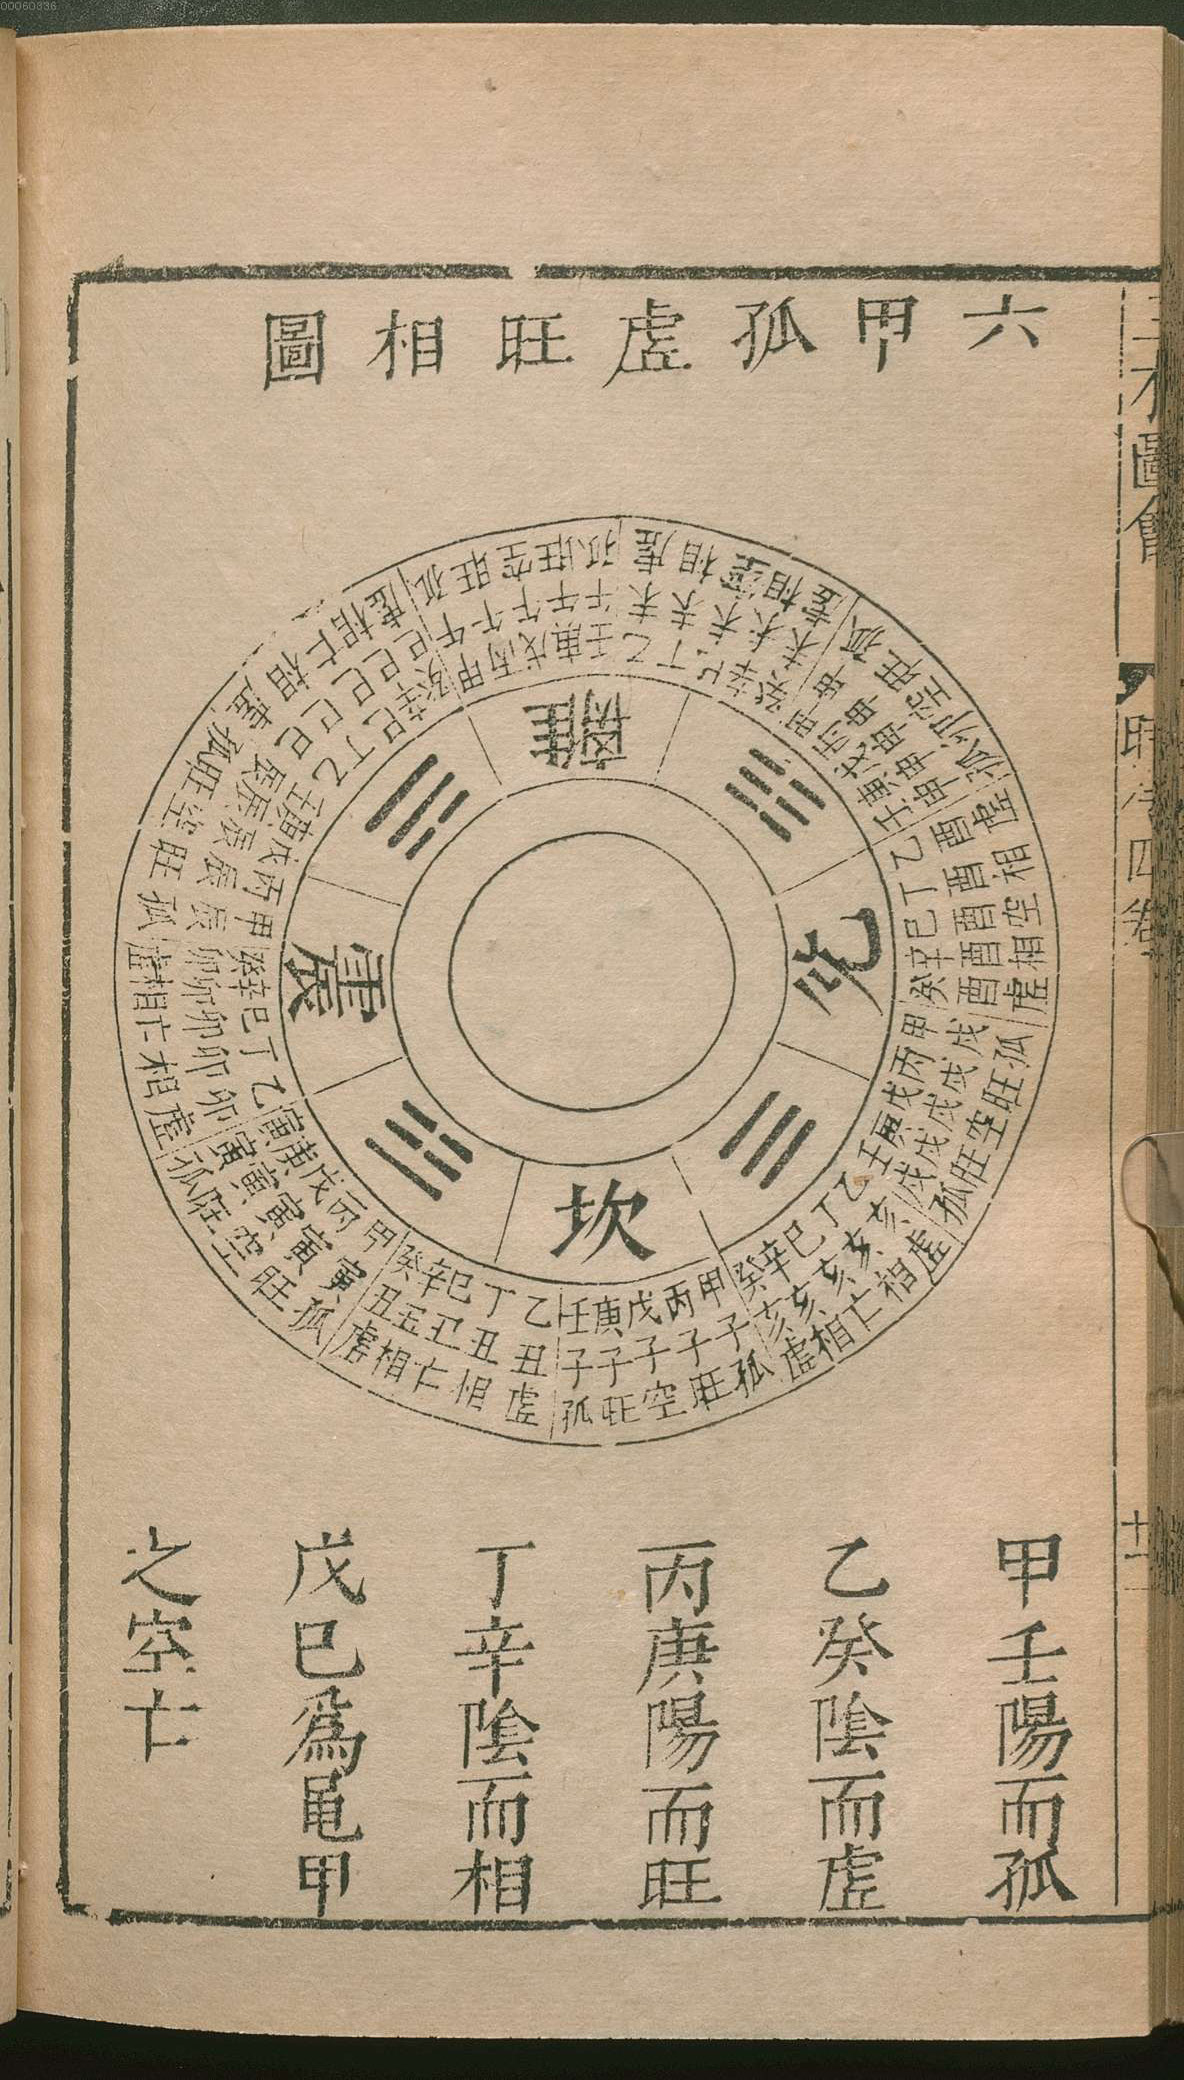 00060336
六甲孤虛旺相圖
圖會
時令四卷
十二
離
兌
坎
震
甲子孤
丙子旺
戊子空
庚子旺
壬子孤
乙丑虛
丁丑相
巳丑亡
辛丑相
癸丑虛
甲寅孤
丙寅旺
戊寅空
庚寅旺
寅孤
乙卯虛
丁卯相
巳卯亡
辛卯相
癸卯虛
甲辰孤
丙辰旺
戊辰空
庚辰旺
壬辰孤
乙巳虛
丁巳相
巳亡
辛巳相
癸巳虛
甲午孤
丙午旺
戊午空
庚午旺
壬午孤
乙未虛
丁未相
巳未空
辛未相
癸未虛
甲申孤
丙申旺
戊申空
庚申
壬申孤
乙酉虛
丁酉相
巳酉空
辛酉相
癸酉虛
甲戌孤
丙戌旺
戊戌空
庚戌旺
壬戌孤
乙亥虛
丁亥相
巳亥亡
辛亥相
癸亥虛
甲壬陽而孤
乙癸陰而虛
丙庚陽而旺
丁辛陰而相
戊巳爲黽甲
之空亡